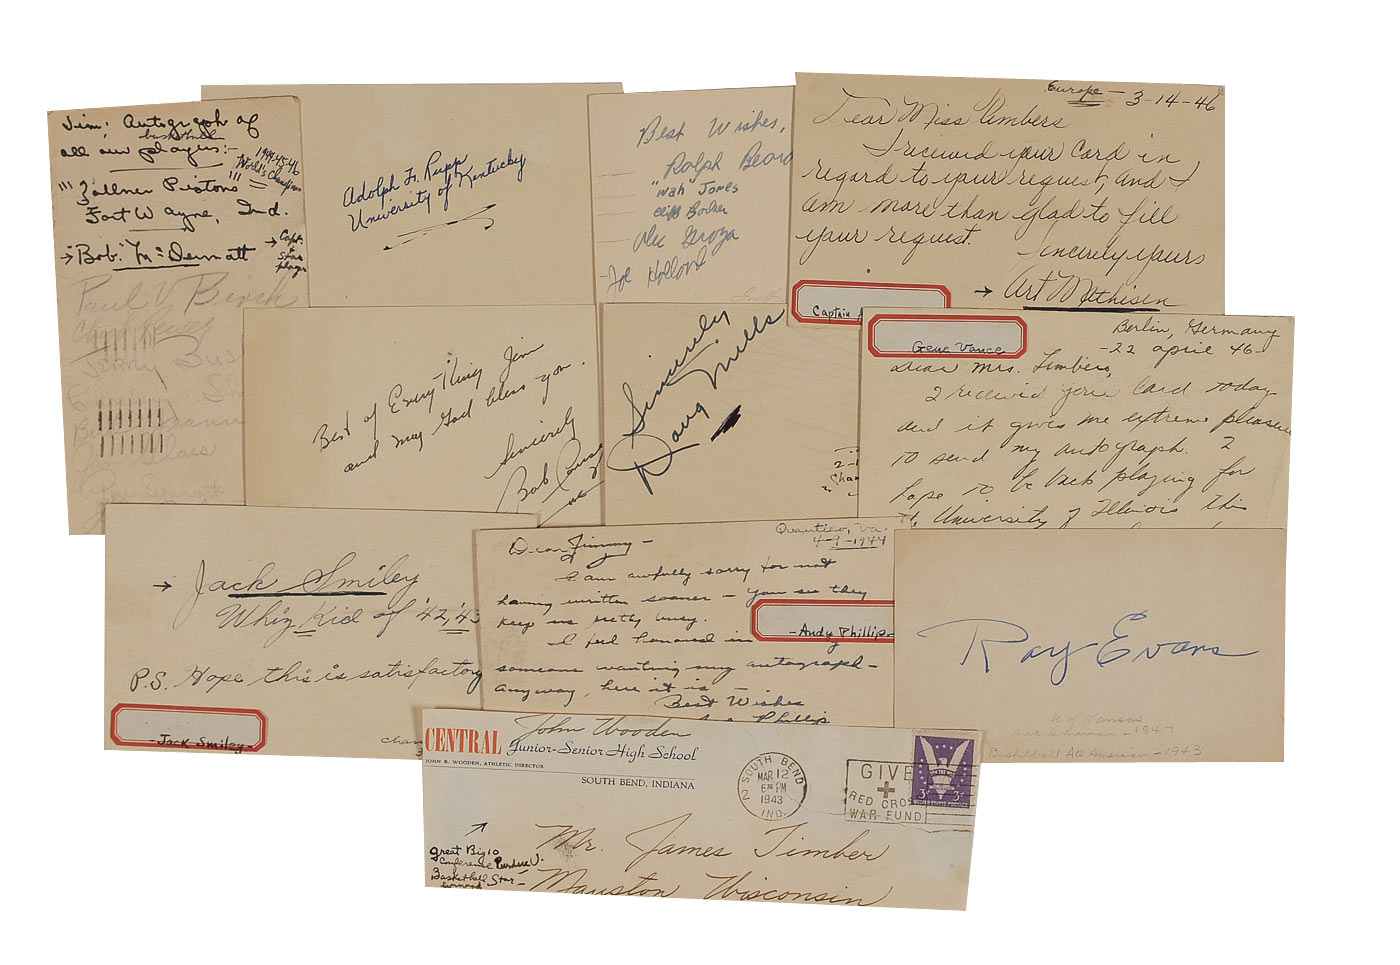 Jim: Autograph of
basketball
all our players:-
1944-45-46
World's Champions
!!! Zollner Pistons !!!
Fort Wayne, Ind.
→ Bob. McDermott → Capt.
& Star
player
Paul V. Birch
Jerry Bus
Glass
Adolph F. Rupp
University of Kentucky
Best Wishes,
Ralph Beard
"Wah" Jones
Cliff Barker
Alex Groza
Joe Holland
Europe - 3-14-46
Dear Miss Timbers
I received your card in
regard to your request, and I
am more than glad to fill
your request.
Sincerely yours
→ Art Mathisen
Captain A
Best of Everything Jim
and may God bless you.
Sincerely
Bob
Sincerely
Doug Mills
Gene Vance
Berlin, Germany
-22 April 46-
Dear Mrs. Timbers,
I received your card today
and it gives me extreme pleasure
to send my autograph. I
hope to be back playing for
the University of Illinois this
→ Jack Smiley
Whiz Kid of '42, '43
P.S. Hope this is satisfactory
-Jack Smiley-
Quantico, Va.
4-9-1944
Dear Jimmy -
I am awfully sorry for not
having written sooner - you see they
keep us pretty busy.
I feel honored in
someone wanting my autograph -
anyway, here it is
Best Wishes
Phillip
-Andy Phillip-
Ray Evans
U of Kansas
All American - 1947
Basketball All American - 1943
John Wooden
CENTRAL Junior-Senior High School
JOHN R. WOODEN, ATHLETIC DIRECTOR
SOUTH BEND, INDIANA
SOUTH BEND 2
MAR 12
6 30 PM
1943
IND.
GIVE
RED CROSS
WAR FUND
3¢ 3¢
Mr. James Timber
Mauston Wisconsin
Great Big 10
Conference Purdue U.
Basketball Star -